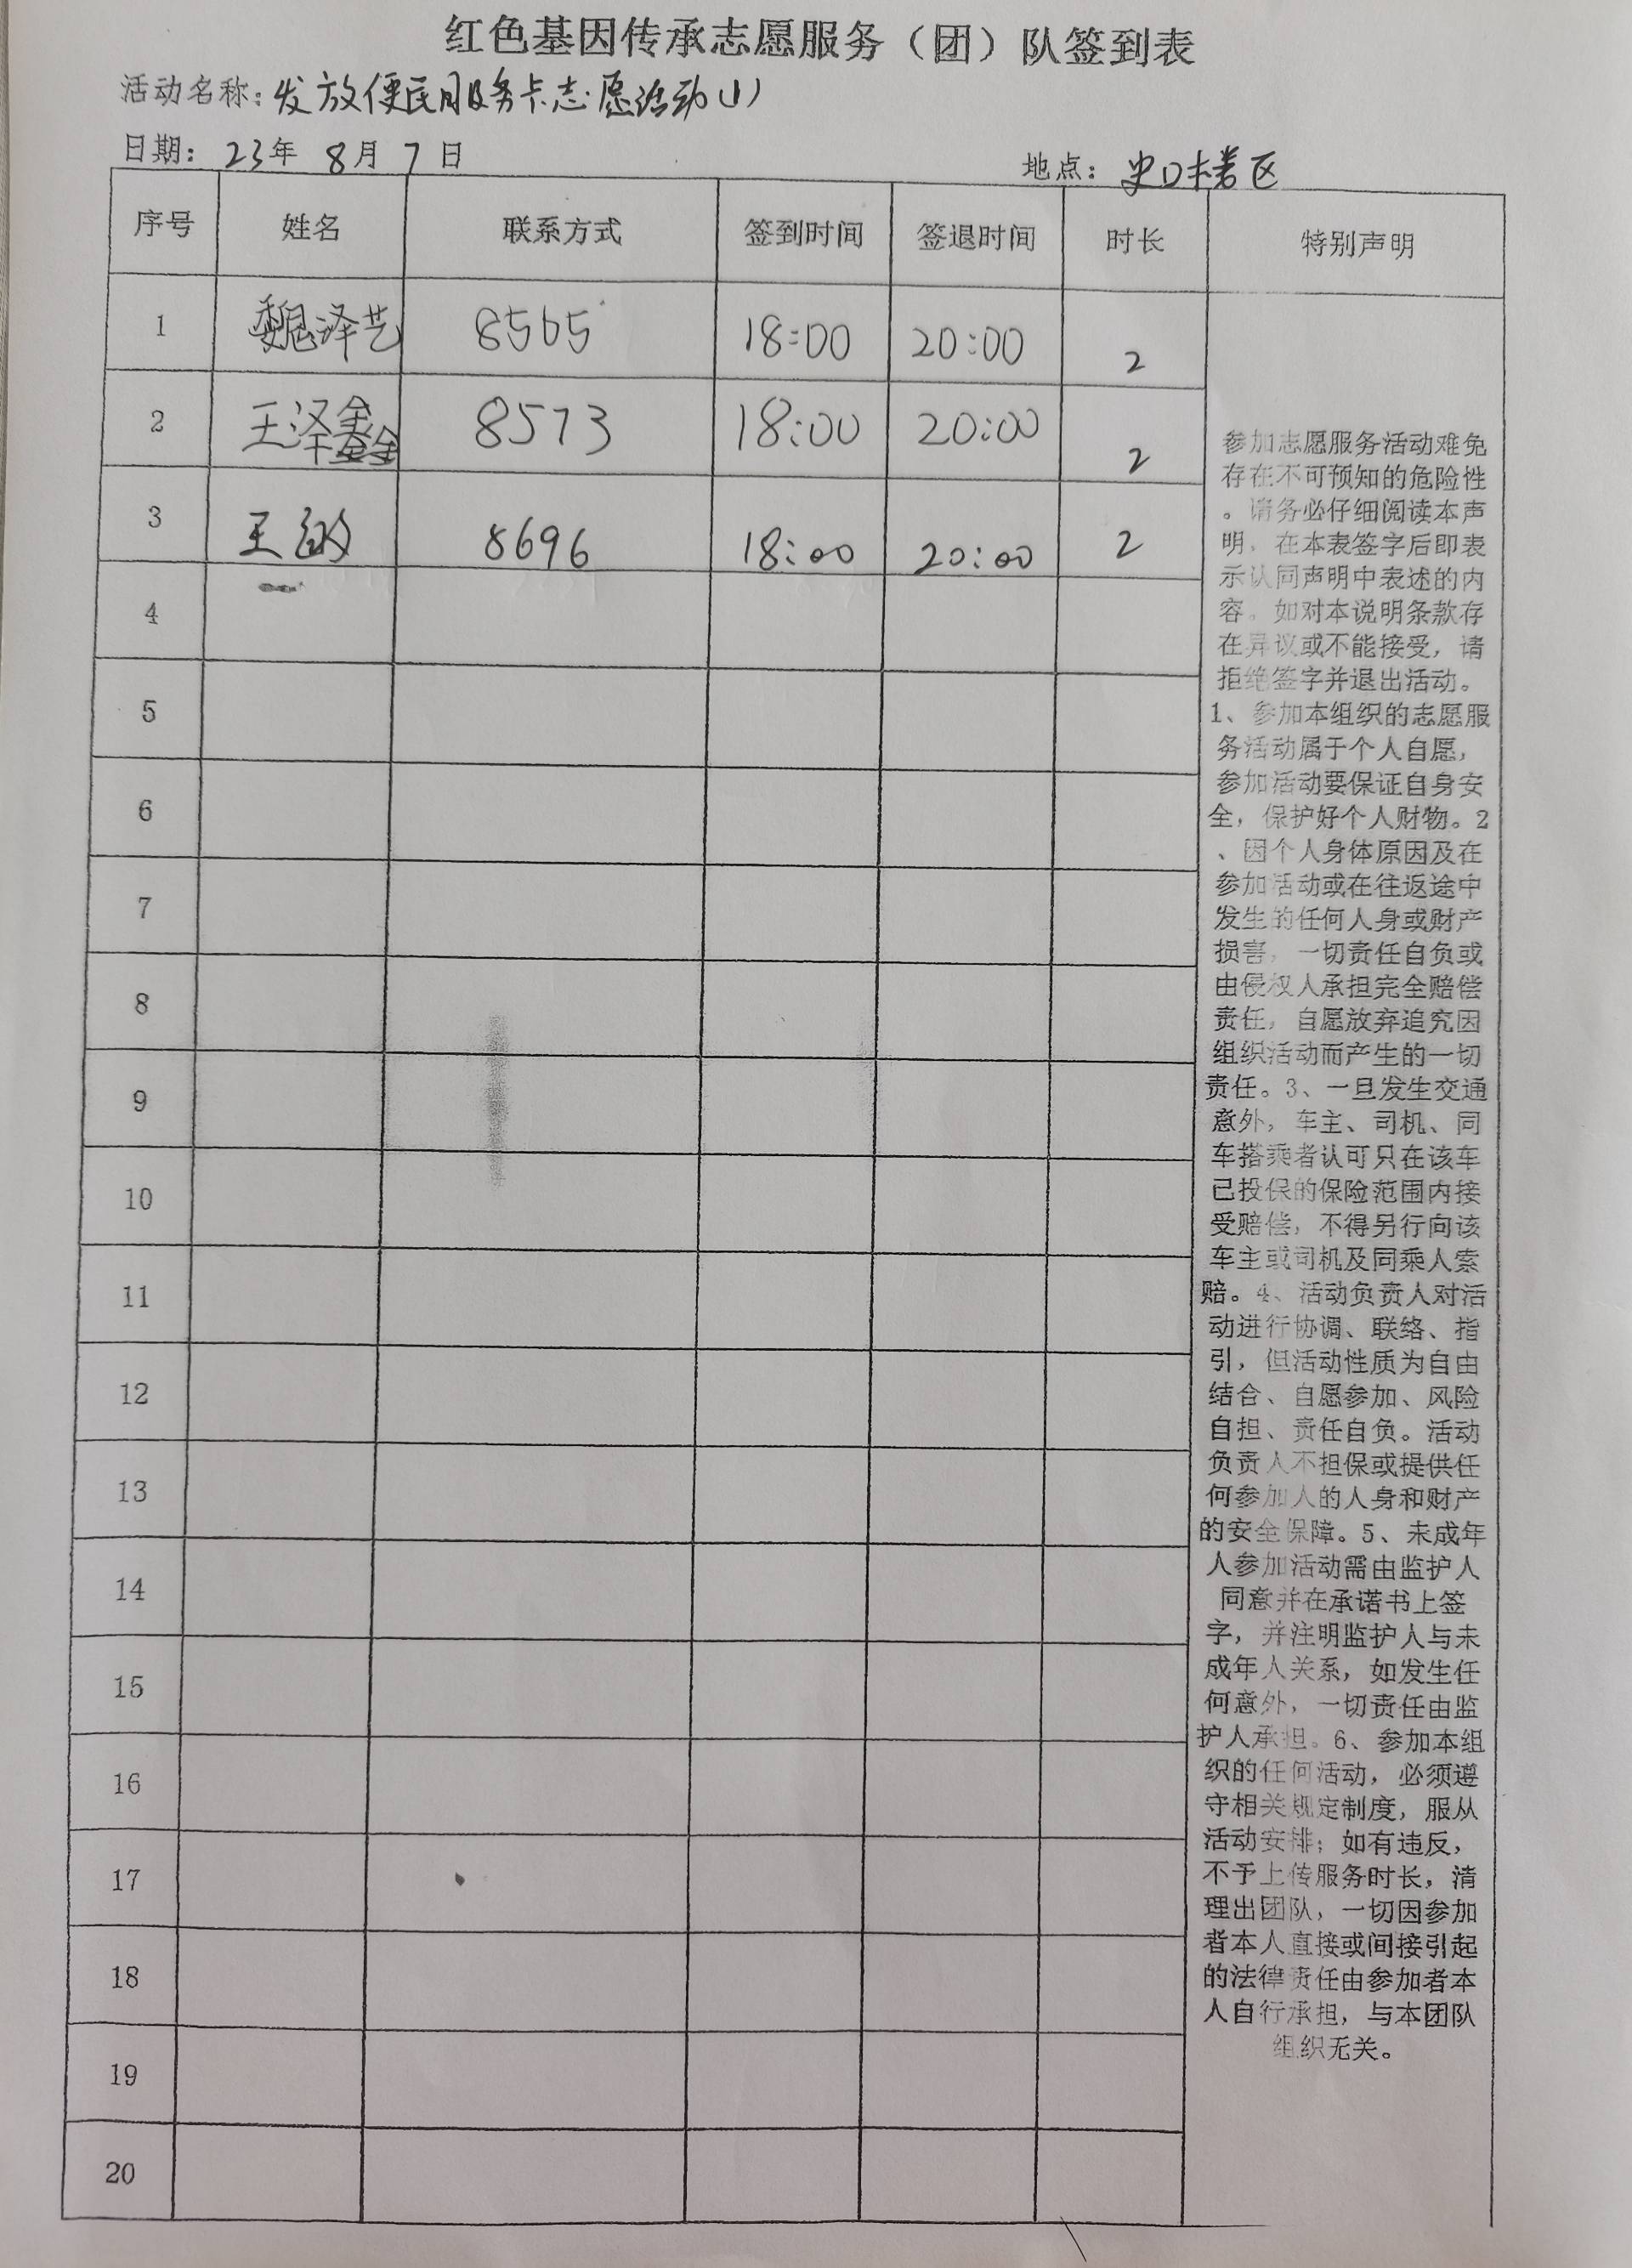 红色基因传承志愿服务（团）队签到表
活动名称：发放便民服务卡志愿活动(1)
日期：23年 8月 7日 地点：史口辖区
序号 姓名 联系方式 签到时间 签退时间 时长 特别声明
1 魏泽艺 8565 18:00 20:00 2
2 王泽鑫 8573 18:00 20:00 2
3 王敏 8696 18:00 20:00 2
4
5
6
7
8
9
10
11
12
13
14
15
16
17
18
19
20
参加志愿服务活动难免
存在不可预知的危险性
。请务必仔细阅读本声
明，在本表签字后即表
示认同声明中表述的内
容。如对本说明条款存
在异议或不能接受，请
拒绝签字并退出活动。
1、参加本组织的志愿服
务活动属于个人自愿，
参加活动要保证自身安
全，保护好个人财物。2
、因个人身体原因及在
参加活动或在往返途中
发生的任何人身或财产
损害，一切责任自负或
由侵权人承担完全赔偿
责任，自愿放弃追究因
组织活动而产生的一切
责任。3、一旦发生交通
意外，车主、司机、同
车搭乘者认可只在该车
已投保的保险范围内接
受赔偿，不得另行向该
车主或司机及同乘人索
赔。4、活动负责人对活
动进行协调、联络、指
引，但活动性质为自由
结合、自愿参加、风险
自担、责任自负。活动
负责人不担保或提供任
何参加人的人身和财产
的安全保障。5、未成年
人参加活动需由监护人
同意并在承诺书上签
字，并注明监护人与未
成年人关系，如发生任
何意外，一切责任由监
护人承担。6、参加本组
织的任何活动，必须遵
守相关规定制度，服从
活动安排；如有违反，
不予上传服务时长，清
理出团队，一切因参加
者本人直接或间接引起
的法律责任由参加者本
人自行承担，与本团队
组织无关。